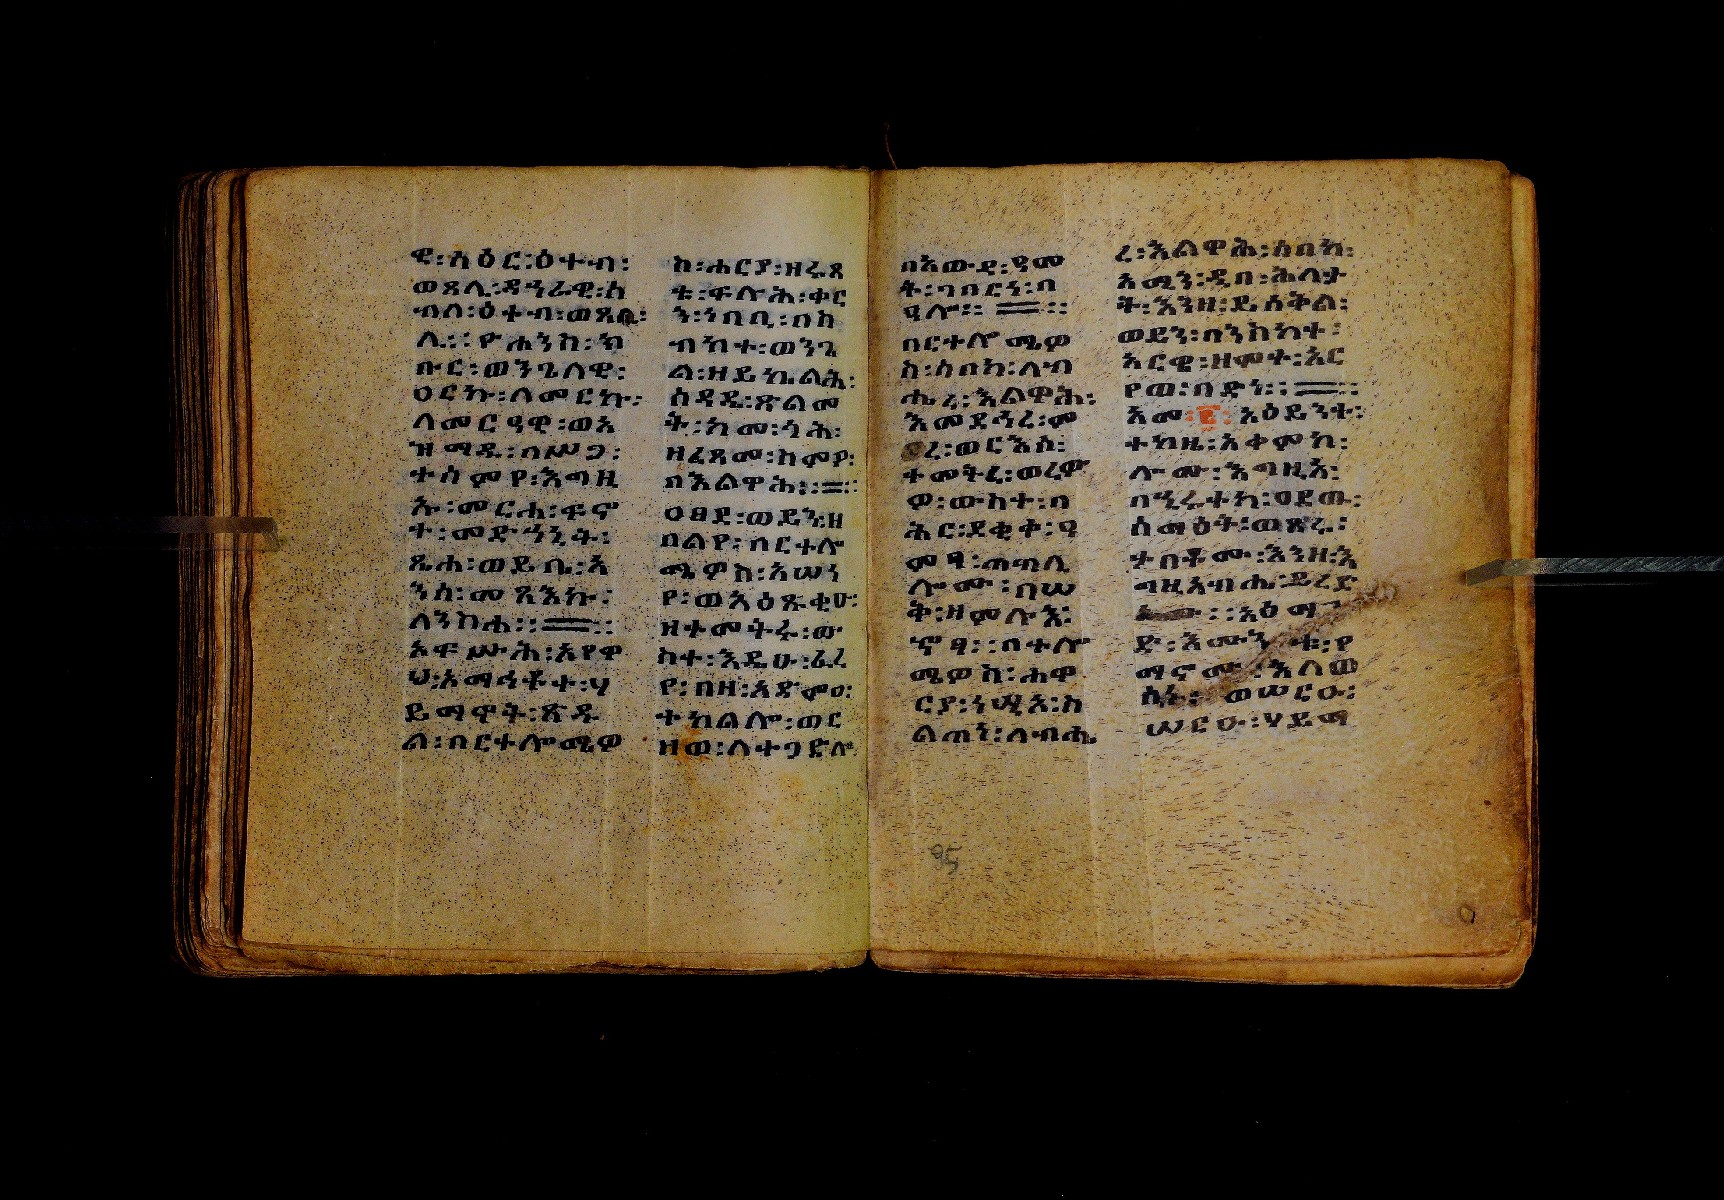 ዊ፡ሰዕር፡ዕተብ፡
ወጸሊ፡ዳኅራዊ፡ሰ
ብለ፡ዕተብ፡ወጸቢ፡
ሊ፡፡ዮሐንከ፡ክ
ቡር፡ወንጌለዊ፡
ዐርኩ፡ለመርኩ፡
ለመርዓዊ፡ወአ
ዝማዱ፡በሥጋ፡
ተሰምየ፡እግዚ
ኡ፡መርሐ፡ፍኖ
ተ፡መድኀኒት፡
ጺሐ፡ወይቤ፡አ
ንሰ፡መጻእኩ፡
ለንስሐ፡፡
አፍሡሕ፡አየዋ
ህ፡አማኅቶተ፡ሃ
ይማኖት፡ጽዱ
ል፡በርተሎሜዎ
ስ፡ሐርያ፡ዘሩጸ
ቱ፡ፍሉሕ፡ቀር
ን፡ነባቢ፡በከ
ብካተ፡ወንጌ
ል፡ዘይኬልሕ፡
ሰዳዴ፡ጽልመ
ት፡ከመ፡ጎሕ፡
ዘረጸመ፡ከምዖ፡
በእልዋሕ፡፡
ዐፀደ፡ወይን፡ዘ
በልየ፡በርተሎ
ሜዎስ፡አሠነ
የ፡ወአዕጹቂሁ፡
ዘተመትሩ፡ው
ስተ፡እዴሁ፡ፈረ
የ፡በዘ፡አደምዐ፡
ተከልሎ፡ወር
ዘወ፡ለተጋድሎ
በአውደ፡ዓመ
ት፡ገበርነ፡በ
ዓሎ፡፡
በርተሎሜዎ
ስ፡ሰበከ፡ለብ
ሔረ፡እልዋሕ፡
እመደኀረ፡መ
ረ፡ወርእሰ፡
ተመትረ፡ወረም
ዎ፡ውስተ፡ባ
ሕር፡ደቂቀ፡ዓ
ምፃ፡ጠብሊ
ሎሙ፡በሠ
ቅ፡ዘምሉእ፡
ኖፃ፡፡በተሎ
ሜዎስ፡ሐዋ
ርያ፡ነሣእ፡ስ
ልጠነ፡ለብሔ
ረ፡እልዋሕ፡ሰበከ፡
አሚን፡ዲበ፡ሕለታ
ት፡እንዘ፡ይሰቅል፡
ወይን፡በንስካተ፡
አርዌ፡ዘሞተ፡አር
የወ፡በድነ፡፡
አመ፡፪፡አዕይንቲ፡
ተከዜ፡አቀምከ፡
ሎሙ፡እግዚአ፡
በኂሩተከ፡ዐደወ፡
ሰማዕት፡ወጻሩ፡
ታቦቶሙ፡እንዘ፡እ
ግዚአብሔ፡ይረድ
ድ፡እሙን
ማኖሙ፡እለወ
ወሠርዑ፡
ሠርዑ፡ሃይማ
95